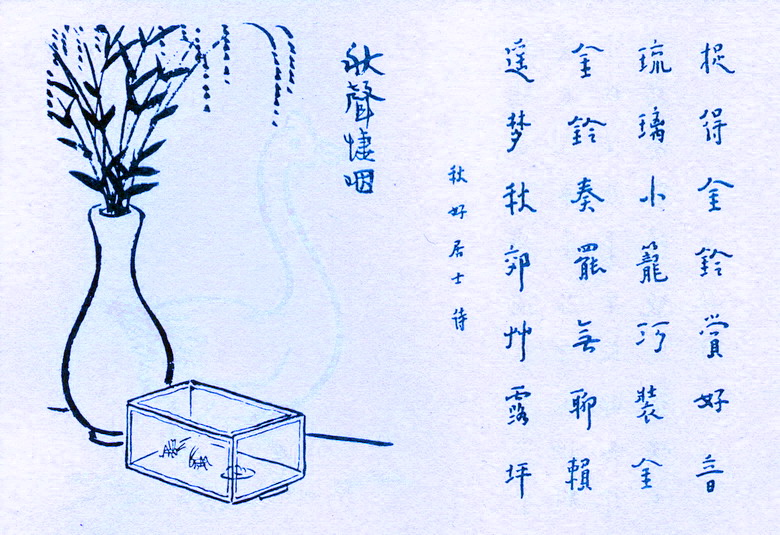 捉得金鈴賞好音
琉璃小籠巧裝金
金鈴奏罷無聊賴
遥梦秋郊艸露坪
秋好居士诗
秋聲悽咽